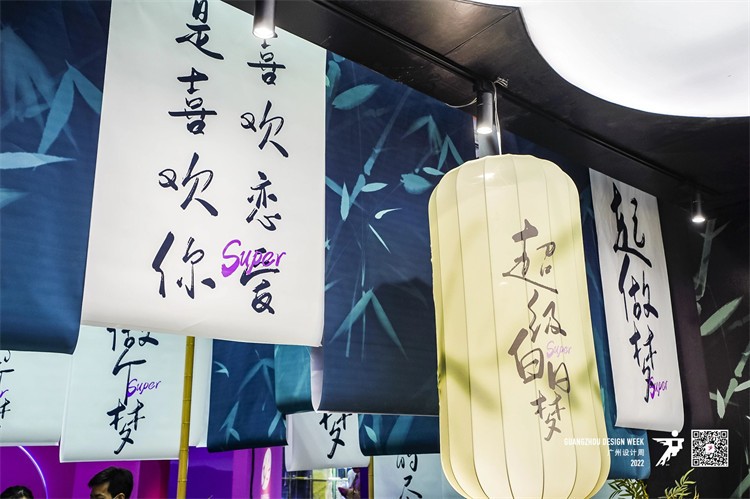 喜欢恋爱
是喜欢你
Super
超级白日梦
Super
起做梦
Super
做个梦
Super
梦
GUANGZHOU DESIGN WEEK
广州设计周
2022